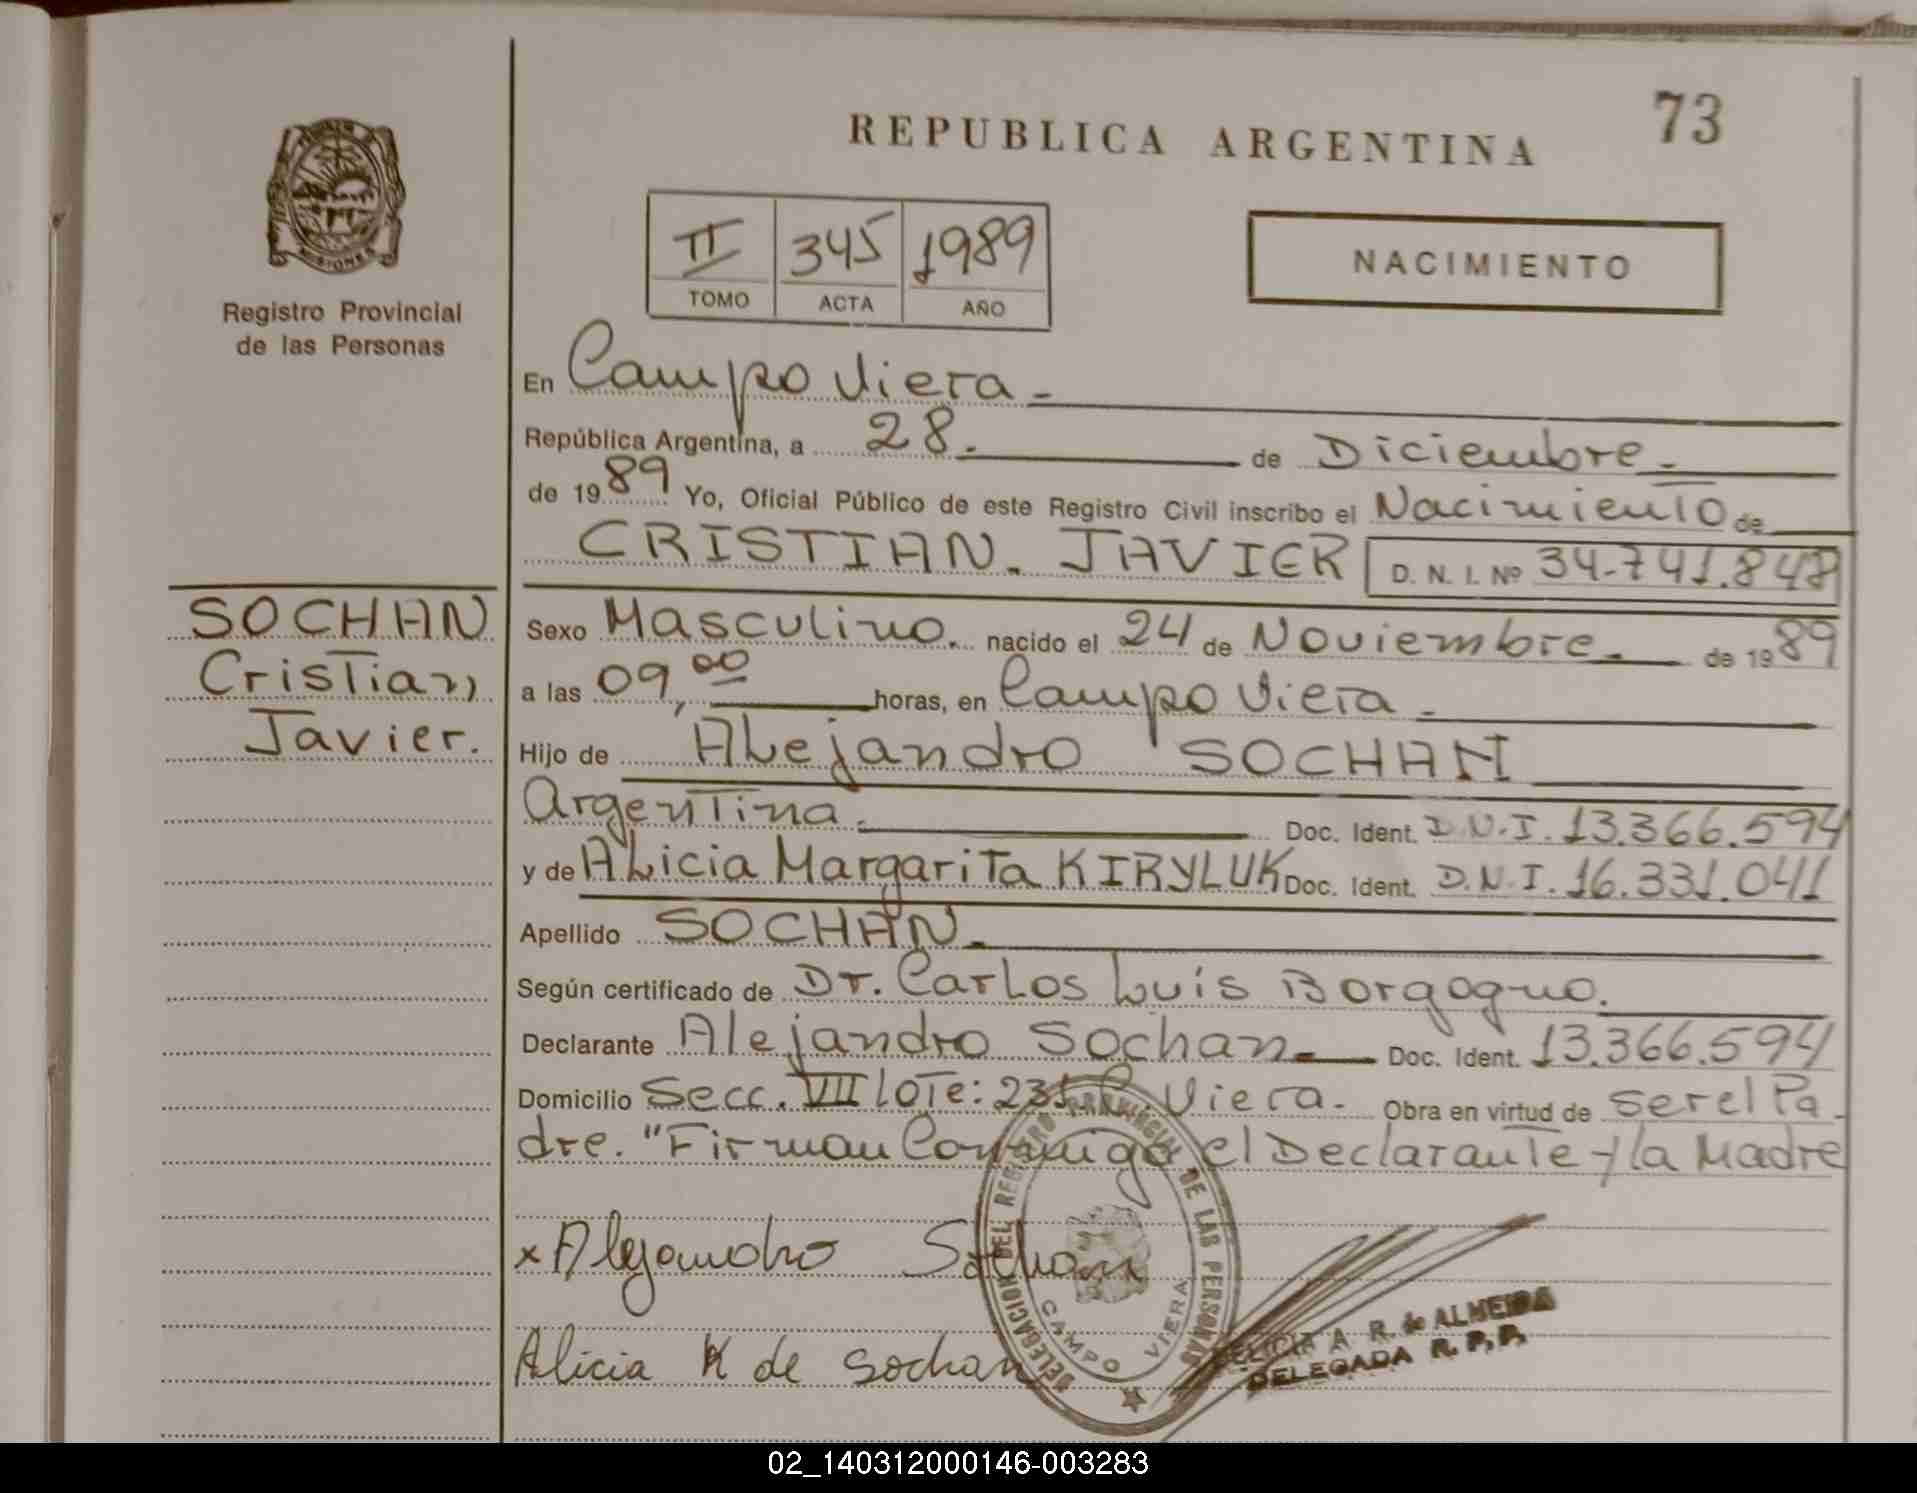 73
REPUBLICA ARGENTINA
MISIONES
Registro Provincial
de las Personas
II 345 1989
TOMO ACTA AÑO
NACIMIENTO
En Campo Viera.-
República Argentina, a 28. de Diciembre.-
de 1989 Yo, Oficial Público de este Registro Civil inscribo el Nacimiento de
CRISTIAN. JAVIER D. N. I. Nº 34.741.848
SOCHAN
Cristian,
Javier.
Sexo Masculino. nacido el 24 de Noviembre. de 1989
a las 09,00 horas, en Campo Viera.-
Hijo de Alejandro SOCHAN
Argentina. Doc. Ident. D.N.I. 13.366.594
y de Alicia Margarita KIRYLUK Doc. Ident. D.N.I. 16.331.041
Apellido SOCHAN.-
Según certificado de Dr. Carlos Luís Borgogno.
Declarante Alejandro Sochan.- Doc. Ident. 13.366.594
Domicilio Secc. VIII lote: 231 C. Viera. Obra en virtud de ser el Pa-
dre. "Firman Conmigo el Declarante y la Madre
x Alejandro Sochan
Alicia K de Sochan
DELEGACION DEL REGISTRO PROVINCIAL DE LAS PERSONAS
CAMPO VIERA
A R. de ALMEIDA
DELEGADA R. P. P.
02_140312000146-003283